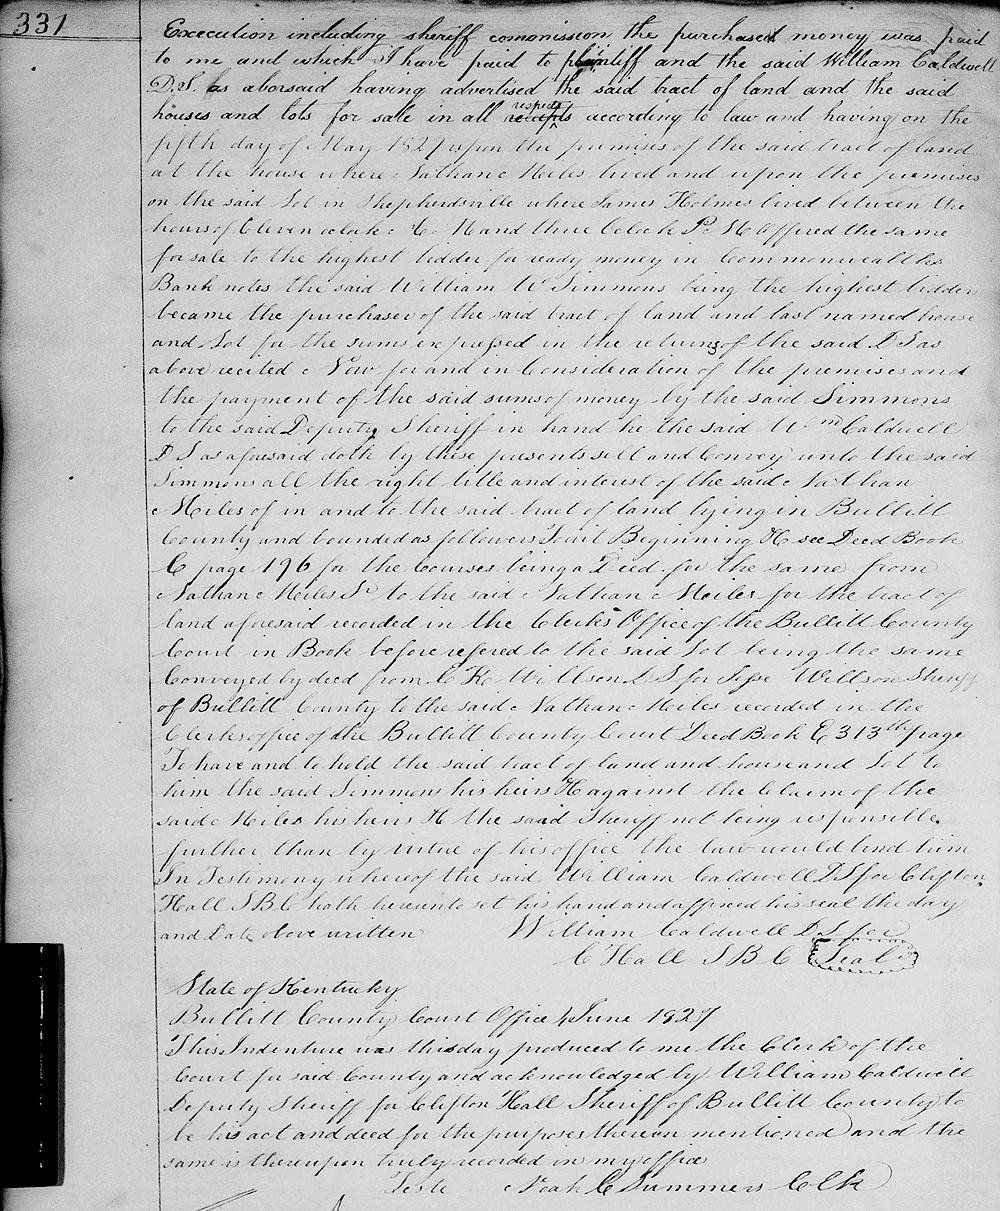 331
Execution including sheriff commission the purchased money was paid
to me and which I have paid to plaintiff and the said William Caldwell
D.S. as aborsaid having advertised the said tract of land and the said
houses and lots for sale in all respects according to law and having on the
fifth day of May 1827 upon the premises of the said tract of land
at the house where Nathan Miles lived and upon the premises
on the said Lot in Shepherdsville where James Holmes lived between the
hours of Eleven oclock A.M and three Oclock P.M Offered the same
for sale to the highest bidder for ready money in Commonwealths
Bank notes the said William W Simmons being the highest bidder
became the purchaser of the said tract of land and last named house
and Lot for the sums expressed in the returns of the said D S as
above recited Now for and in Consideration of the premises and
the payment of the said sums of money by the said Simmons
to the said Deputy Sheriff in hand he the said Wm Caldwell
D S as aforesaid doth by these presents sell and Convey unto the said
Simmons all the right title and interest of the said Nathan
Miles of in and to the said tract of land lying in Bullitt
County and bounded as followers Towit Beginning &c see Deed Book
C page 196 for the Courses being a Deed for the same from
Nathan Miles Sr to the said Nathan Miles for the tract of
land aforesaid recorded in the Clerks Office of the Bullitt County
Court in Book before refered to the said Lot being the same
Conveyed by deed from C K Willson D S for Jesse Willson Sheriff
of Bullitt County to the said Nathan Miles recorded in the
Clerks office of the Bullitt County Court Deed Book E 313th page
To have and to hold the said tract of land and house and Lot to
him the said Simmons his heirs &c against the Claim of the
said Miles his heirs &c the said Sheriff not being responsible
further than by virtue of his office the law would bind him
In Testimony whereof the said William Caldwell D S for Clifton
Hall S B C hath hereunto set his hand and affixed his seal the day
and Date above written William Caldwell D.S. for
C Hall S B C Seal
State of Kentucky
Bullitt County Court Office 4 June 1827
This Indenture was this day produced to me the Clerk of the
Court for said County and acknowledged by William Caldwell
Deputy Sheriff for Clifton Hall Sheriff of Bullitt County to
be his act and deed for the purposes therein mentioned and the
same is thereupon truly recorded in my office
Teste Noah C Summers Clk